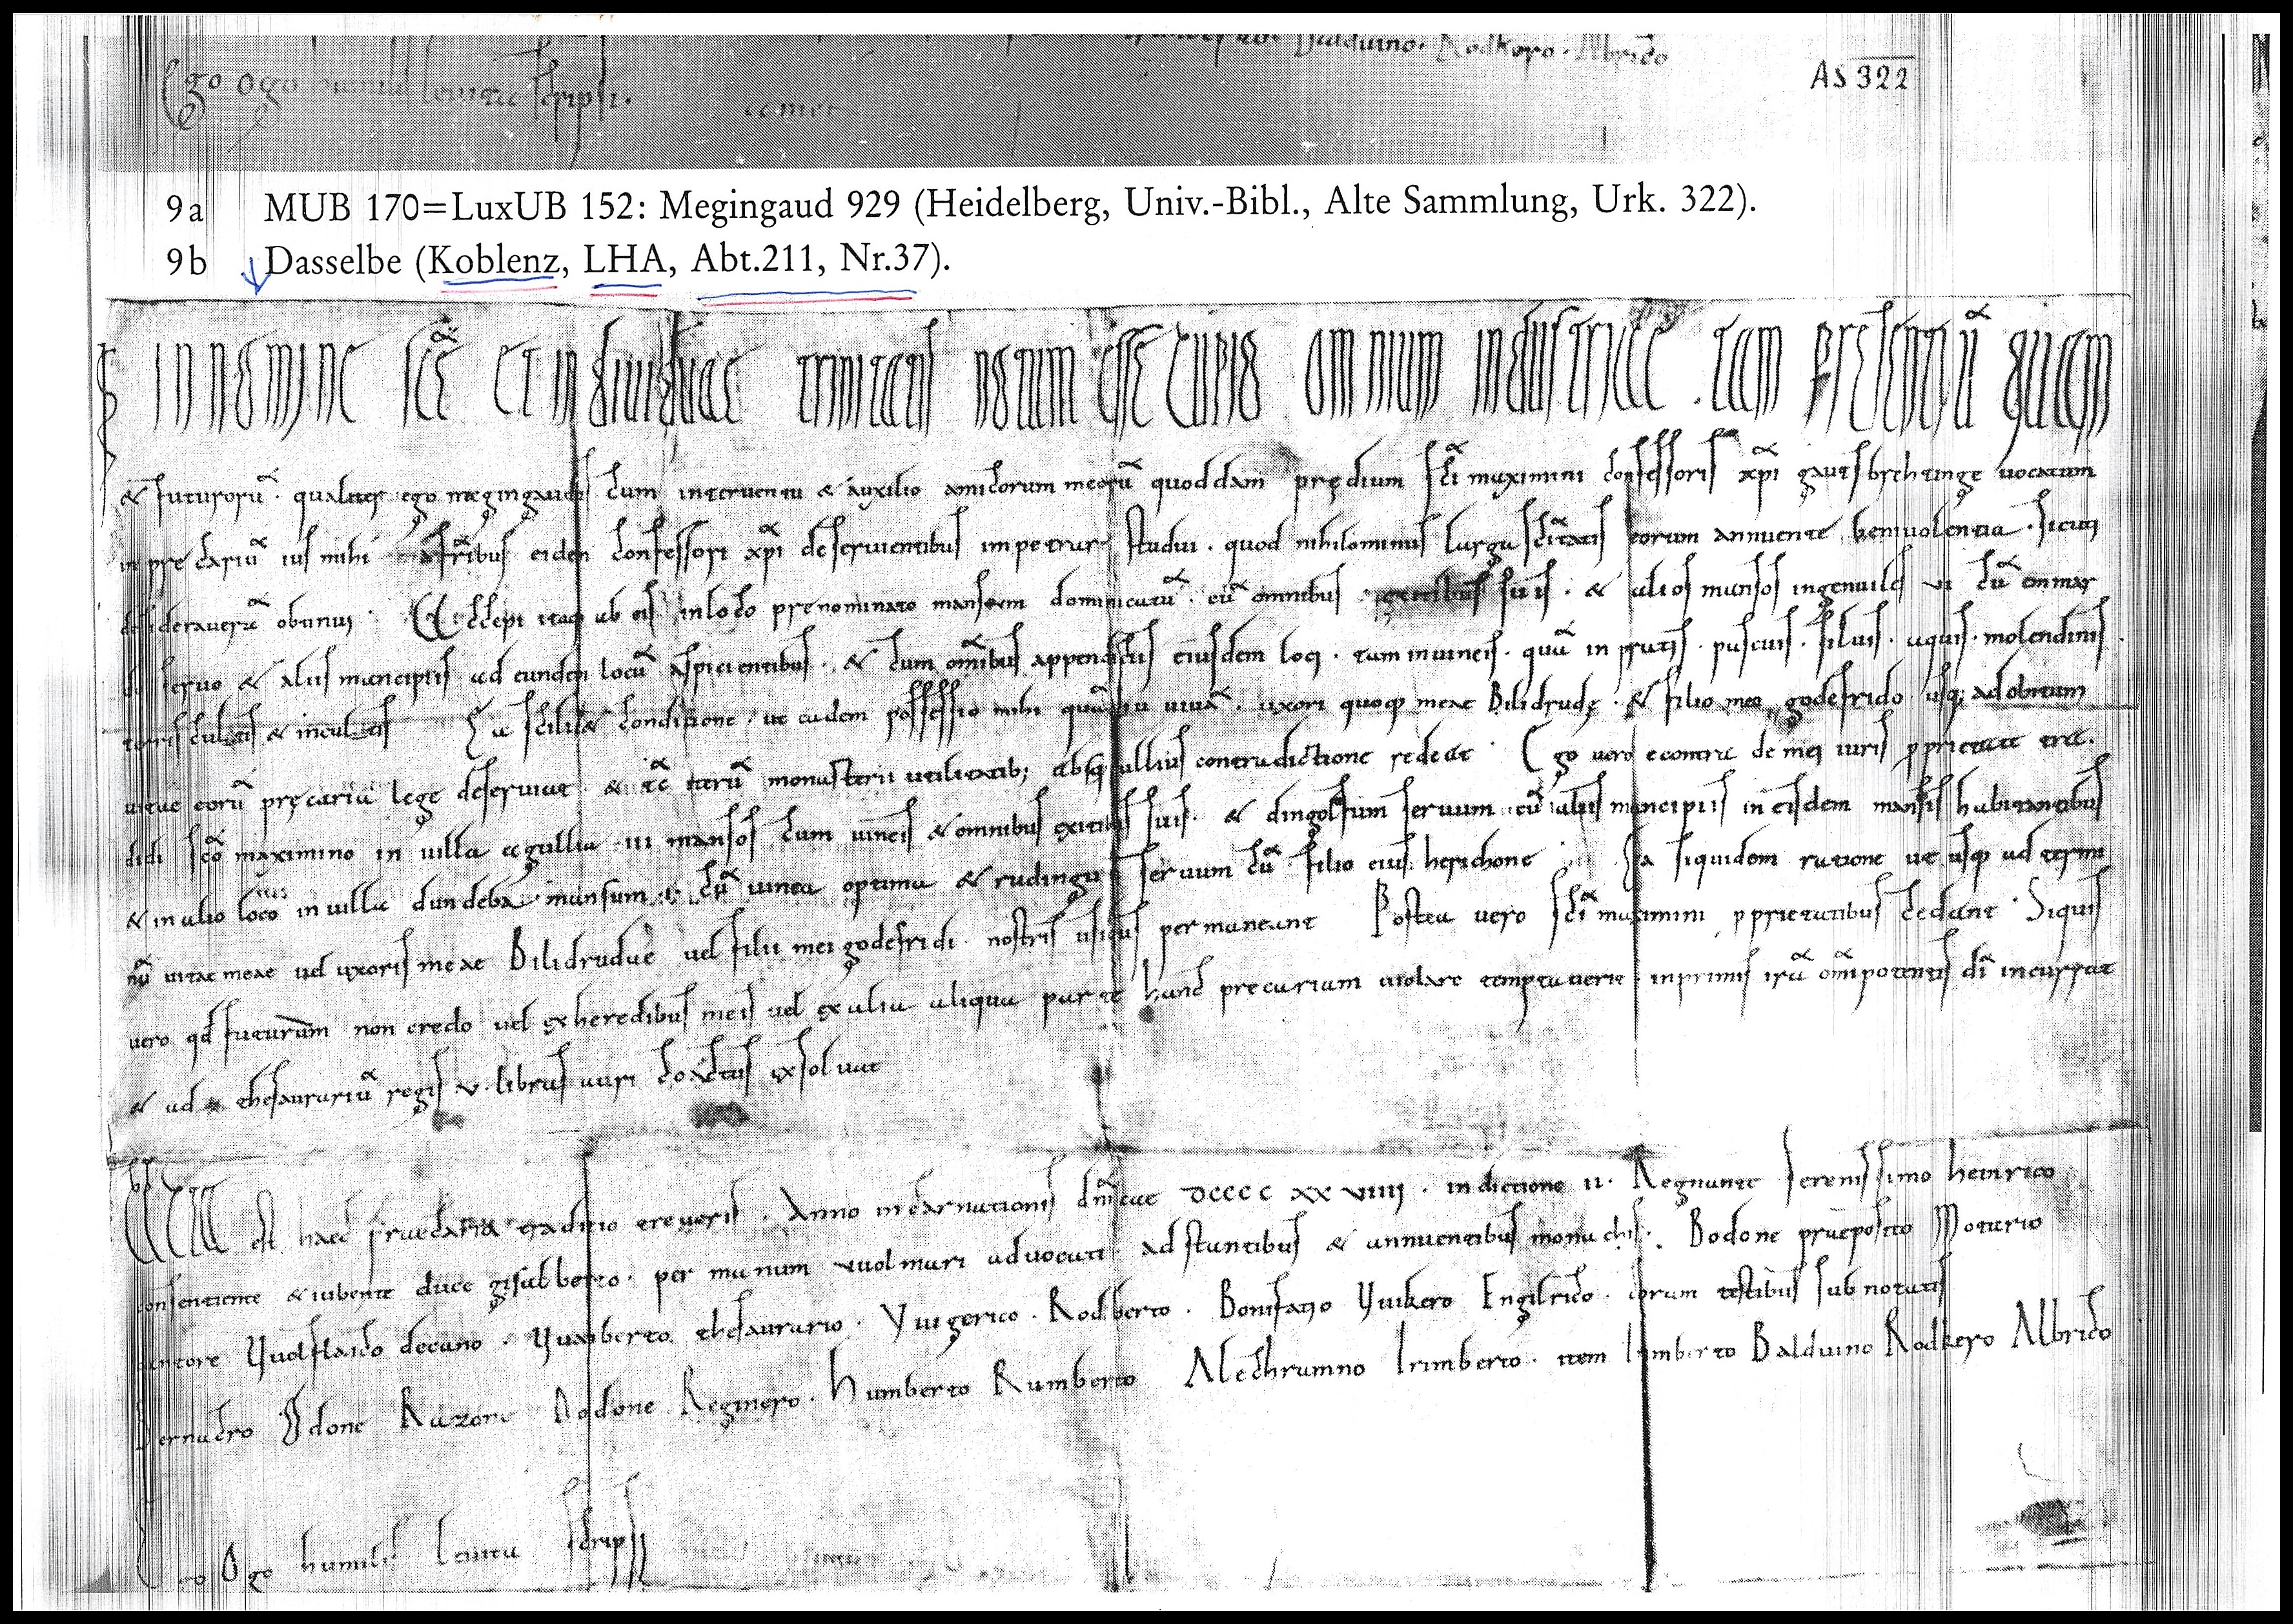 Balduino. Rodkero. Albrico
Ego Ogo humilis leuita scripsi.
AS 322
9a MUB 170=LuxUB 152: Megingaud 929 (Heidelberg, Univ.-Bibl., Alte Sammlung, Urk. 322).
9b Dasselbe (Koblenz, LHA, Abt.211, Nr.37).
IN NOMINE scẽ ET INdiuiduae trinitatis notum esse cupio omnium industriae . tam presentiũ quam
& futurorũ . qualiter ego megingaudus cum interuentu & auxilio amicorum meorũ quoddam prędium sc̃i maximini confessoris xp̃i gautsbrehtinge uocatum
in precariũ ius mihi a fr̃ibus eidem confessori xp̃i deseruientibus impetrare studui . quod nihilominus larga sc̃itatis eorum annuente beniuolentia . sicuti
desideraueram obtinui . Accepi itaq ab eis in loco prenominato mansum dominicatũ . cũ omnibus exitibus suis . & alios mansos ingenuiles vi cũ enmar
do seruo & aliis mancipiis ad eundem locũ aspicientibus . & cum om̃ibus appendiciis eiusdem loci . tam in uineis . quã in pratis . pascuis . siluis . aquis . molendinis .
terris cultis & incultis Ea scilic& condicione . ut eadem possessio mihi quãdiu uiuã . uxori quoq meae Bilidrudę . & filio meo godefrido usq; ad obitum
uitae eorũ pręcariã lege deseruiat . & itarũ monasterii utilitatib; absq ullius contradictione redeat . Ego uero econtra de mei iuris pprietate tra .
didi sc̃o maximino in uilla ecgillia . iii mansos cum uineis & omnibus exitibus suis . & dingolfum seruum cũ aliis mancipiis in eisdem mansis habitantibus
& in alio loco in uilla dundeba mansum . i . cũ uinea optima & rudingũ seruum cũ filio eius herichone . Ea siquidem ratione ut usq ad termi
nũ uitae meae uel uxoris meae Bilidrudae uel filii mei godefridi . nostris usibus permaneant Postea uero sc̃i maximini pprietatibus cedant . Siquis
uero qđ futurum non credo uel ex heredibus meis uel ex alia aliqua parte hanc precariam uiolare temptauerit . inprimis irã om̃ipotentis dĩ incurrat
& ad thesaurariũ regis . v . libras auri coactus exsoluat
ACTA est haec praecaria traditio treueris . Anno incarnationis dñicae DCCCC XX VIIII . indictione ii . Regnante serenissimo heinrico
consentiente & iubente duce gisalberto . per manum uuolmari aduocati . adstantibus & annuentibus monachis . Bodone praeposito Motario
cantore Vuolflaico decano . Vuasberto thesaurario . Vuigerico . Rodberto . Bonifatio Vuikero Engilrico . coram testibus subnotatis
Bernacro Odone Razone Dodone Reginero . Humberto Ramberto Alechramno Irimberto . item Irimberto Balduino Rodkero Albrico
Ego Ogo humilis leuita scripsi